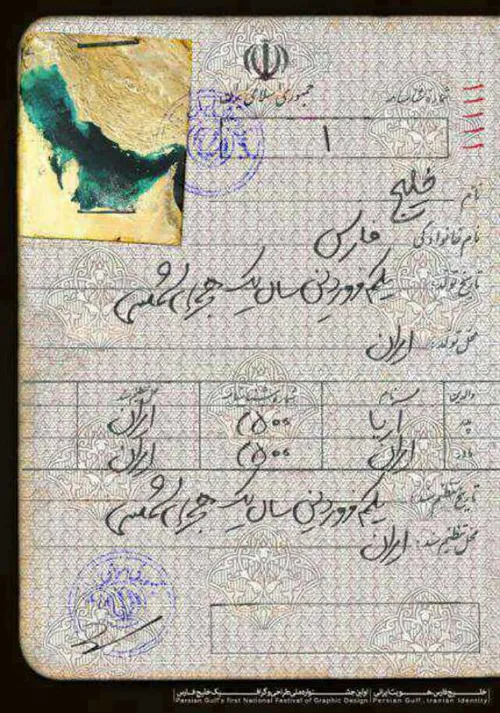 جمهوری اسلامی ایران
شماره شناسنامه
۱۱۱۱۱
۱
نام خلیج
نام خانوادگی فارس
تاریخ تولد: یکم فروردین سال یک هجری شمسی
محل تولد: ایران
والدین نام شماره شناسنامه
پدر آریا ۲۵۰۰ ایران
مادر ایران ۲۵۰۰ ایران
تاریخ تنظیم سند: یکم فروردین سال یک هجری شمسی
محل تنظیم سند: ایران
خلیج فارس هویت ایرانی | اولین جشنواره ملی طراحی گرافیک خلیج فارس
Persian Gulf's first National Festival of Graphic Design | Persian Gulf, Iranian Identity